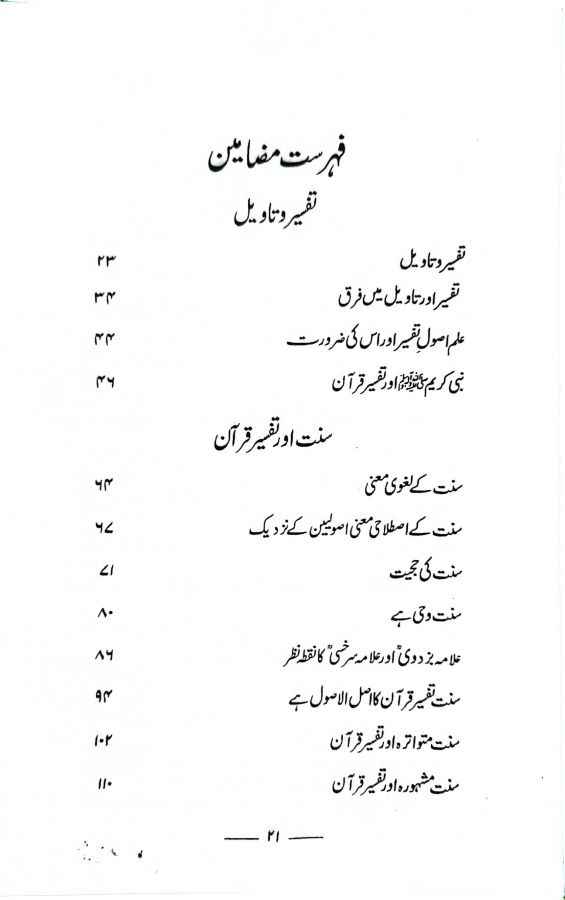 فہرست مضامین
تفسیر و تاویل
تفسیر و تاویل ۲۳
تفسیر اور تاویل میں فرق ۳۴
علم اصولِ تفسیر اور اس کی ضرورت ۴۴
نبی کریم ﷺ اور تفسیر قرآن ۴۶
سنت اور تفسیر قرآن
سنت کے لغوی معنی ۶۴
سنت کے اصطلاحی معنی اصولیین کے نزدیک ۶۷
سنت کی حجیت ۷۱
سنت وحی ہے ۸۰
علامہ بزدویؒ اور علامہ سرخسیؒ کا نقطہ نظر ۸۶
سنت تفسیر قرآن کا اصل الاصول ہے ۹۴
سنت متواترہ اور تفسیر قرآن ۱۰۲
سنت مشہورہ اور تفسیر قرآن ۱۱۰
۲۱